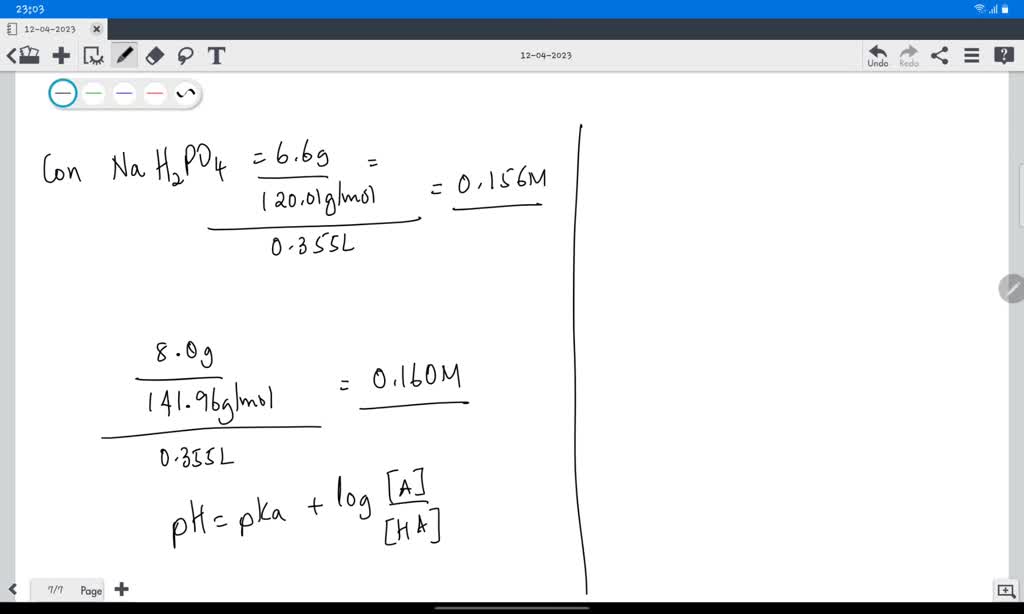 23:03
12-04-2023
T
12-04-2023
Undo
Redo
Con NaH₂PO₄ = 6.6g =
120.01g/mol
0.355L
= 0.156M
8.0g
141.96g/mol
0.355L
= 0.160M
pH = pKa + log [A]
[HA]
7/7 Page